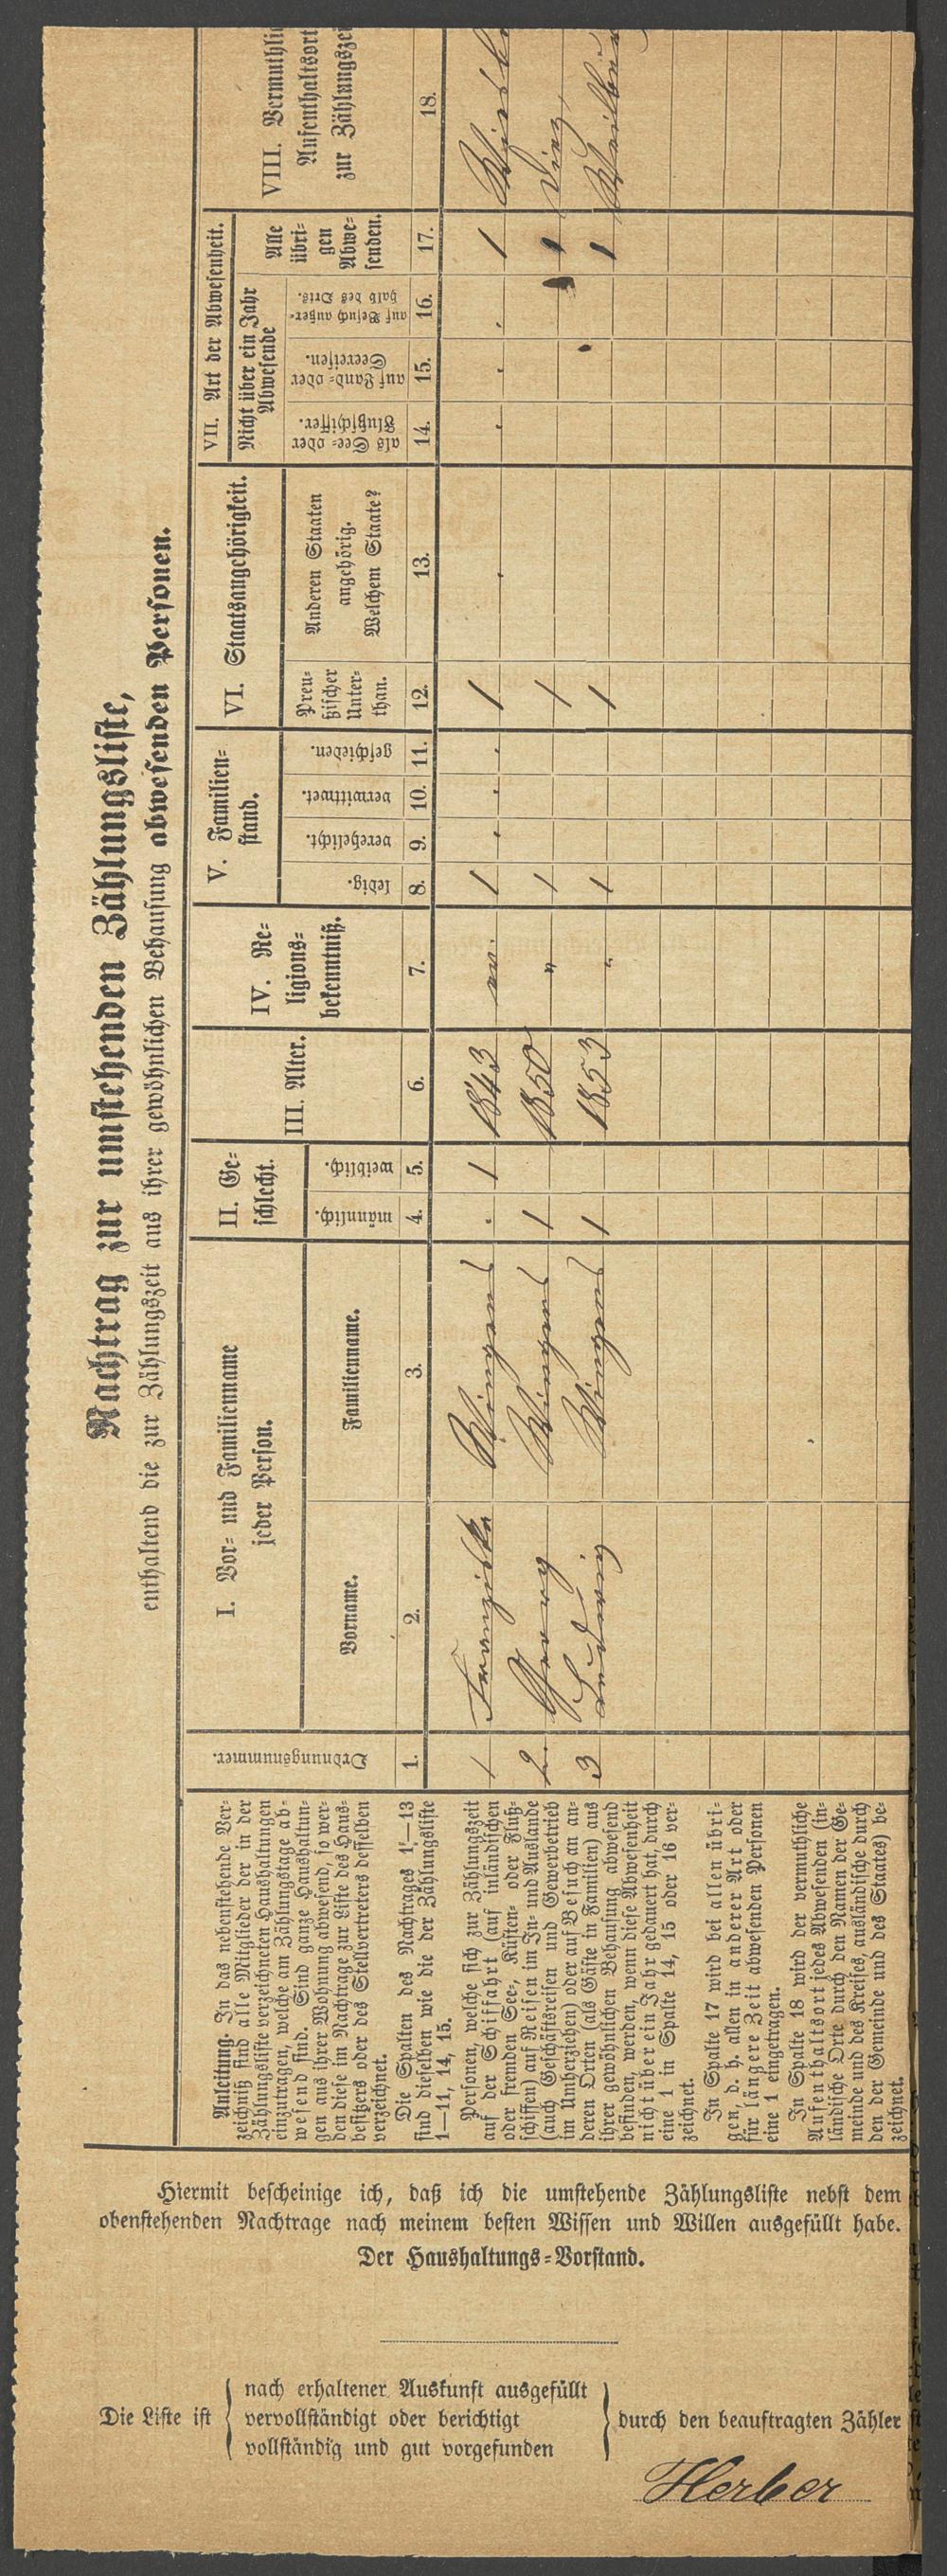 Nachtrag zur umstehenden Zählungsliste,
enthaltend die zur Zählungszeit aus ihrer gewöhnlichen Behausung abwesenden Personen.
Anleitung. In das nebenstehende Ver-
zeichniß sind alle Mitglieder der in der
Zählungsliste verzeichneten Haushaltungen
einzutragen, welche am Zählungstage ab-
wesend sind. Sind ganze Haushaltun-
gen aus ihrer Wohnung abwesend, so wer-
den diese im Nachtrage zur Liste des Haus-
besitzers oder des Stellvertreters desselben
verzeichnet.
Die Spalten des Nachtrages 1—13
sind dieselben wie die der Zählungsliste
1—11, 14, 15.
Personen, welche sich zur Zählungszeit
auf der Schiffahrt (auf inländischen
oder fremden See-, Küsten- oder Fluß-
schiffen) auf Reisen im In- und Auslande
(auch Geschäftsreisen und Gewerbebetrieb
im Umherziehen) oder auf Besuch an an-
deren Orten (als Gäste in Familien) aus
ihrer gewöhnlichen Behausung abwesend
befinden, werden, wenn diese Abwesenheit
nicht über ein Jahr gedauert hat, durch
eine 1 in Spalte 14, 15 oder 16 ver-
zeichnet.
In Spalte 17 wird bei allen übri-
gen, d. h. allen in anderer Art oder
für längere Zeit abwesenden Personen
eine 1 eingetragen.
In Spalte 18 wird der vermuthliche
Aufenthaltsort jedes Abwesenden (in-
ländische Orte durch den Namen der Ge-
meinde und des Kreises, ausländische durch
den der Gemeinde und des Staates) be-
zeichnet.
Ordnungsnummer.
1.
I. Vor- und Familienname
jeder Person.
Vorname.
2.
Familienname.
3.
II. Ge-
schlecht.
männlich.
4.
weiblich.
5.
III. Alter.
6.
IV. Re-
ligions-
bekenntniß.
7.
V. Familien-
stand.
ledig.
8.
verehelicht.
9.
verwittwet.
10.
geschieden.
11.
VI. Staatsangehörigkeit.
Preu-
ßischer
Unter-
than.
12.
Anderen Staaten
angehörig.
Welchem Staate?
13.
VII. Art der Abwesenheit.
Nicht über ein Jahr
Abwesende
als See- oder
Flußschiffer.
14.
auf Land- oder
Seereisen.
15.
auf Besuch außer-
halb des Orts.
16.
Alle
übri-
gen
Abwe-
senden.
17.
VIII. Vermuthlic
Aufenthaltsort
zur Zählungszei
18.
1 Franziska Wingend . 1 1843 ev. 1 . . . 1 . . . . 1
2 Georg Wingend 1 1850 " 1 1 1 Diez
3 Ludwig Wingend 1 1853 " 1 1 1
Hiermit bescheinige ich, daß ich die umstehende Zählungsliste nebst dem
obenstehenden Nachtrage nach meinem besten Wissen und Willen ausgefüllt habe.
Der Haushaltungs-Vorstand.
Die Liste ist
nach erhaltener Auskunft ausgefüllt
vervollständigt oder berichtigt
vollständig und gut vorgefunden
durch den beauftragten Zähler
Herber